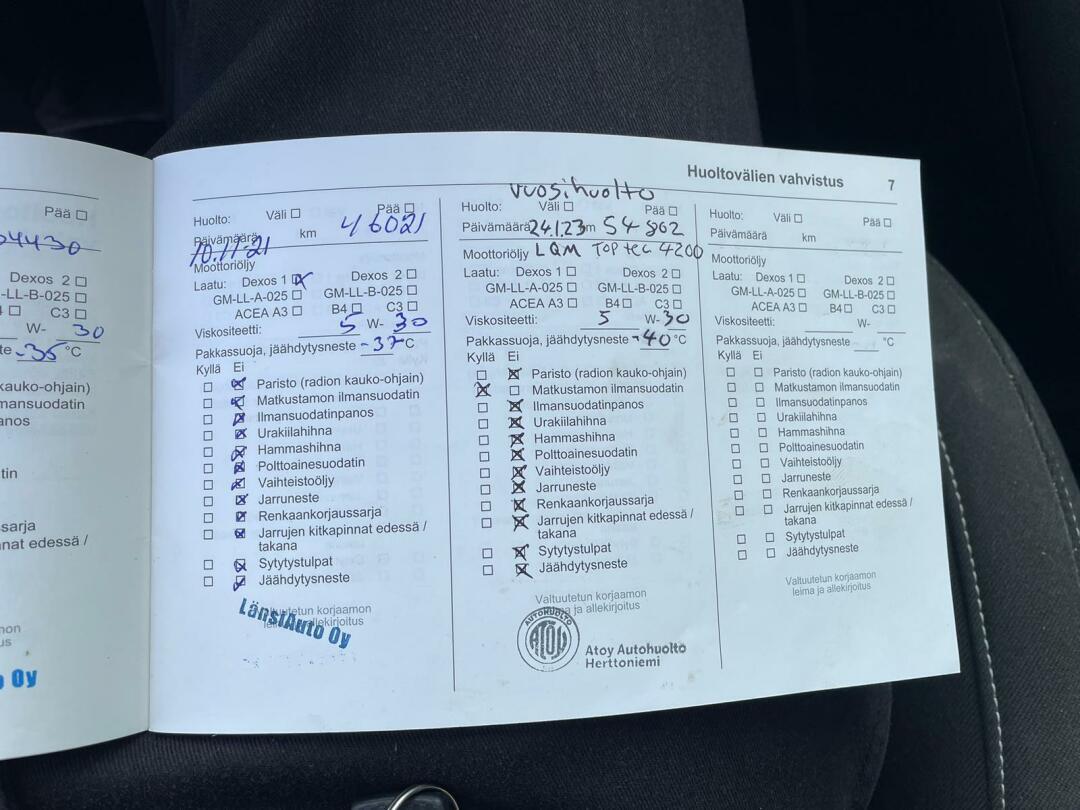 Huoltovälien vahvistus 7
Pää
04430
Dexos 2
-LL-B-025
C3
W- 30
-35 °C
kauko-ohjain)
manosuodatin
anos
tin
sarja
nnat edessä /
Oy
Huolto: Väli Pää
Päivämäärä km 46021
10.11.21
Moottoriöljy
Laatu: Dexos 1 x Dexos 2
GM-LL-A-025 GM-LL-B-025
ACEA A3 B4 C3
Viskositeetti: 5 W- 30
Pakkassuoja, jäähdytysneste -37 °C
Kyllä Ei
Paristo (radion kauko-ohjain)
Matkustamon ilmansuodatin
Ilmansuodatinpanos
Urakiilahihna
Hammashihna
Polttoainesuodatin
Vaihteistoöljy
Jarruneste
Renkaankorjaussarja
Jarrujen kitkapinnat edessä /
takana
Sytytystulpat
Jäähdytysneste
Valtuutetun korjaamon
leima ja allekirjoitus
LänsiAuto Oy
vuosihuolto
Huolto: Väli Pää
Päivämäärä 24.1.23 km 54862
Moottoriöljy LQM TOP tec 4200
Laatu: Dexos 1 Dexos 2
GM-LL-A-025 GM-LL-B-025
ACEA A3 B4 C3
Viskositeetti: 5 W- 30
Pakkassuoja, jäähdytysneste -40 °C
Kyllä Ei
Paristo (radion kauko-ohjain)
Matkustamon ilmansuodatin
Ilmansuodatinpanos
Urakiilahihna
Hammashihna
Polttoainesuodatin
Vaihteistoöljy
Jarruneste
Renkaankorjaussarja
Jarrujen kitkapinnat edessä /
takana
Sytytystulpat
Jäähdytysneste
Valtuutetun korjaamon
leima ja allekirjoitus
AUTOHUOLTO
ATOY
Atoy Autohuolto
Herttoniemi
Huolto: Väli Pää
Päivämäärä km
Moottoriöljy
Laatu: Dexos 1 Dexos 2
GM-LL-A-025 GM-LL-B-025
ACEA A3 B4 C3
Viskositeetti: W-
Pakkassuoja, jäähdytysneste °C
Kyllä Ei
Paristo (radion kauko-ohjain)
Matkustamon ilmansuodatin
Ilmansuodatinpanos
Urakiilahihna
Hammashihna
Polttoainesuodatin
Vaihteistoöljy
Jarruneste
Renkaankorjaussarja
Jarrujen kitkapinnat edessä /
takana
Sytytystulpat
Jäähdytysneste
Valtuutetun korjaamon
leima ja allekirjoitus